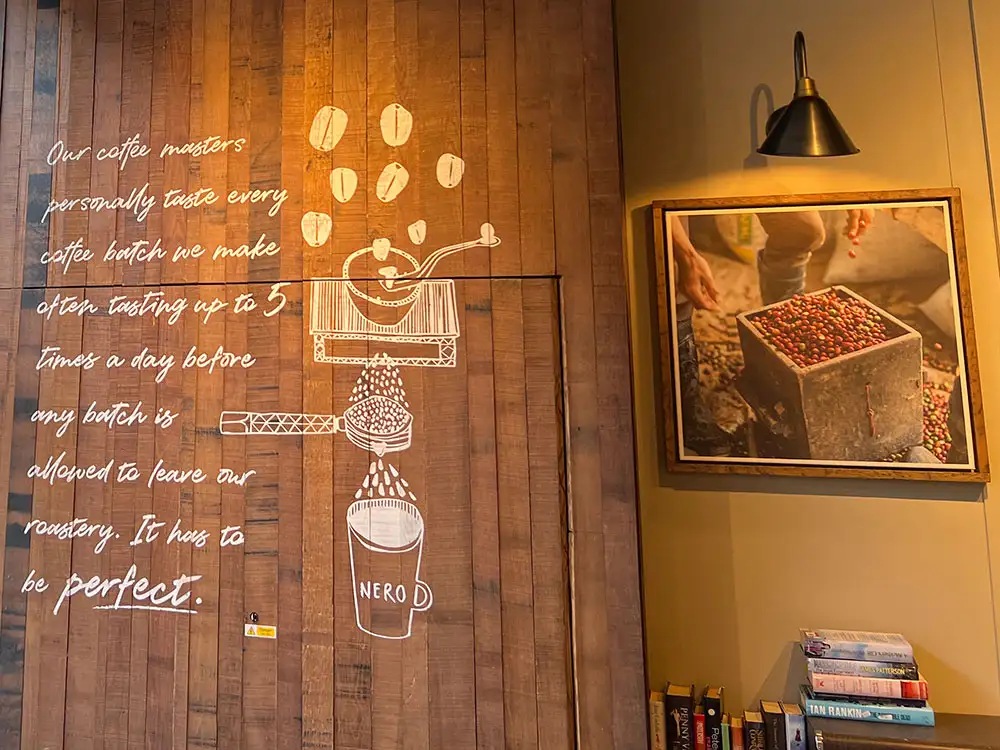 Our coffee masters
personally taste every
coffee batch we make
often tasting up to 5
times a day before
any batch is
allowed to leave our
roastery. It has to
be perfect.
NERO
JAMES PATTERSON
IAN RANKIN
PENNY